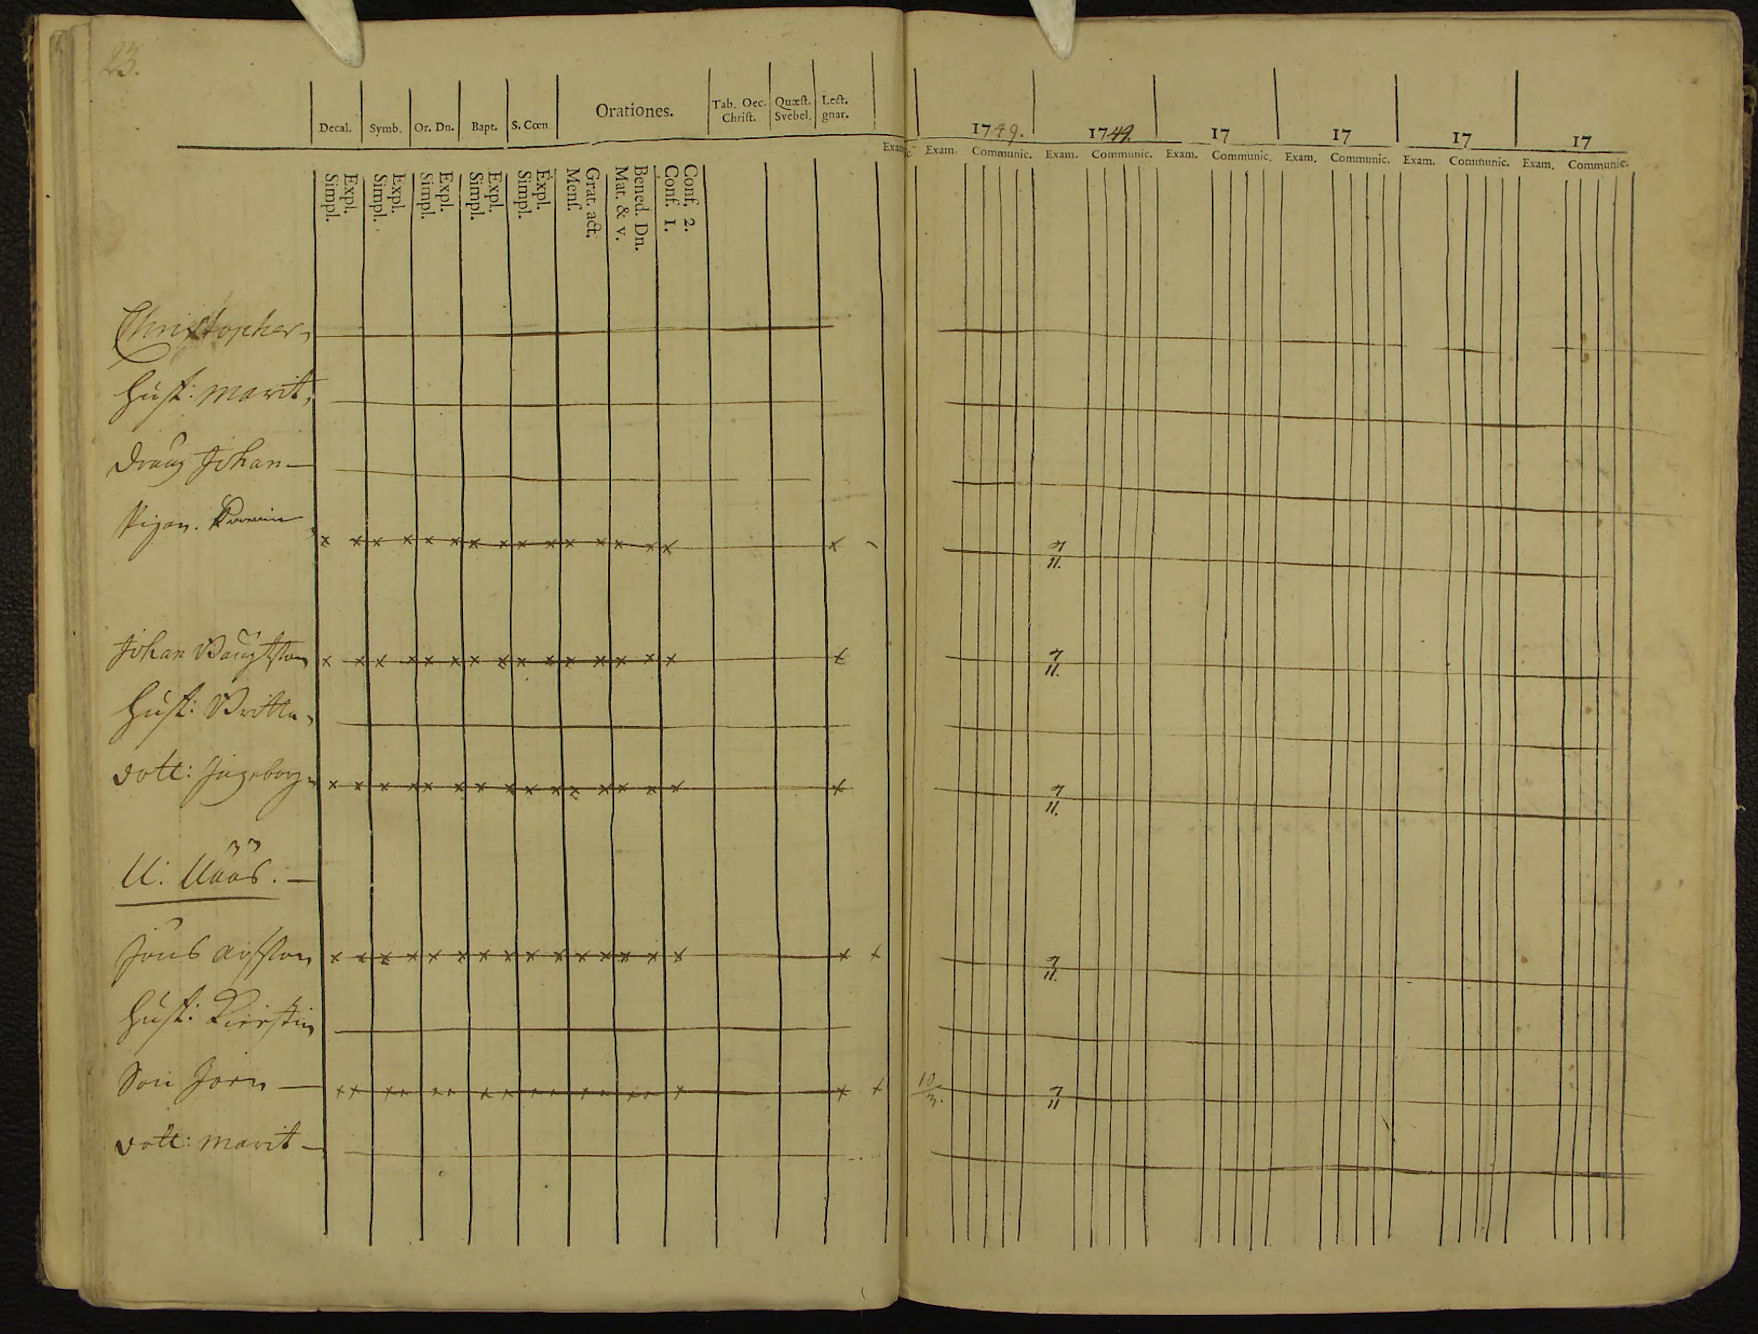 23.
Decal. Symb. Or. Dn. Bapt. S. Cœn Orationes. Tab. Oec. Christ. Quæst. Svebel. Lect. gnar.
1749. 1749. 17 17 17 17
Exam. Exam. Communic. Exam. Communic. Exam. Communic. Exam. Communic. Exam. Communic. Exam. Communic.
Expl. Simpl. Expl. Simpl. Expl. Simpl. Expl. Simpl. Expl. Simpl. Grat. act. Mens. Bened. Dn. Mat. & v. Conf. 2. Conf. 1.
Christopher
Hust: Marit
Dräng Johan
Pigan.
x x x x x x x x x x x x x x x x 7/11.
Johan
x x x x x x x x x x x x x x x x 7/11.
Hust: Britta
dott: Ingeborg
x x x x x x x x x x x x x x x x 7/11.
Jöns
x x x x x x x x x x x x x x x x x 7/11.
Hust: Kierstin
Son Jören
10/3. 7/11
dott: Marit